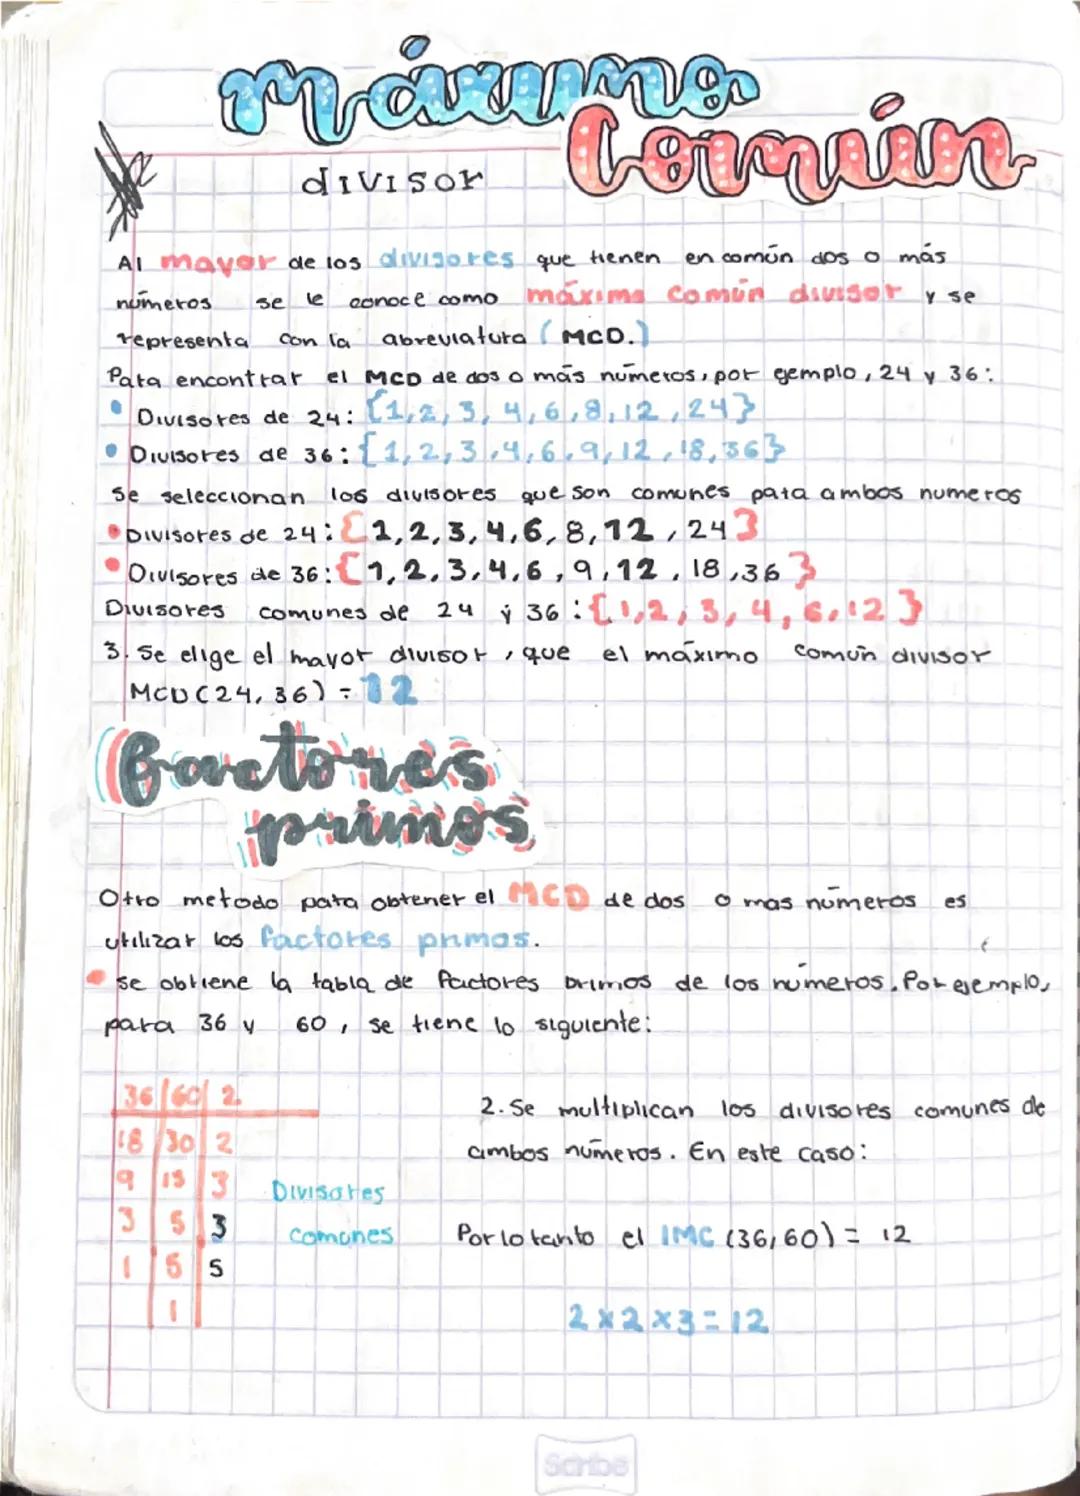 máximo
Común
divisor
Al mayor de los divisores que tienen en común dos o más
números se le conoce como máximo común divisor y se
representa con la abreviatura (MCD.)
Para encontrar el MCD de dos o más números, por gemplo, 24 y 36:
• Divisores de 24: {1,2,3,4,6,8,12,24}
• Divisores de 36: {1,2,3,4,6,9,12,18,36}
se seleccionan los divisores que son comunes para ambos numeros
• Divisores de 24: {1,2,3,4,6,8,12,24}
• Divisores de 36: {1,2,3,4,6,9,12,18,36}
Divisores comunes de 24 y 36: {1,2,3,4,6,12}
3. Se elige el mayor divisor, que el máximo común divisor
MCD(24,36) = 12
factores
primos
Otro metodo para obtener el MCD de dos o mas números es
utilizar los factores primos.
• se obtiene la tabla de factores primos de los números. Por ejemplo,
para 36 y 60, se tiene lo siguiente:
36 60 2
18 30 2
9 15 3
3 5 3
1 5 5
1
Divisores
comunes
2. Se multiplican los divisores comunes de
ambos números. En este caso:
Por lo tanto el IMC (36,60) = 12
2x2x3=12
Scribe